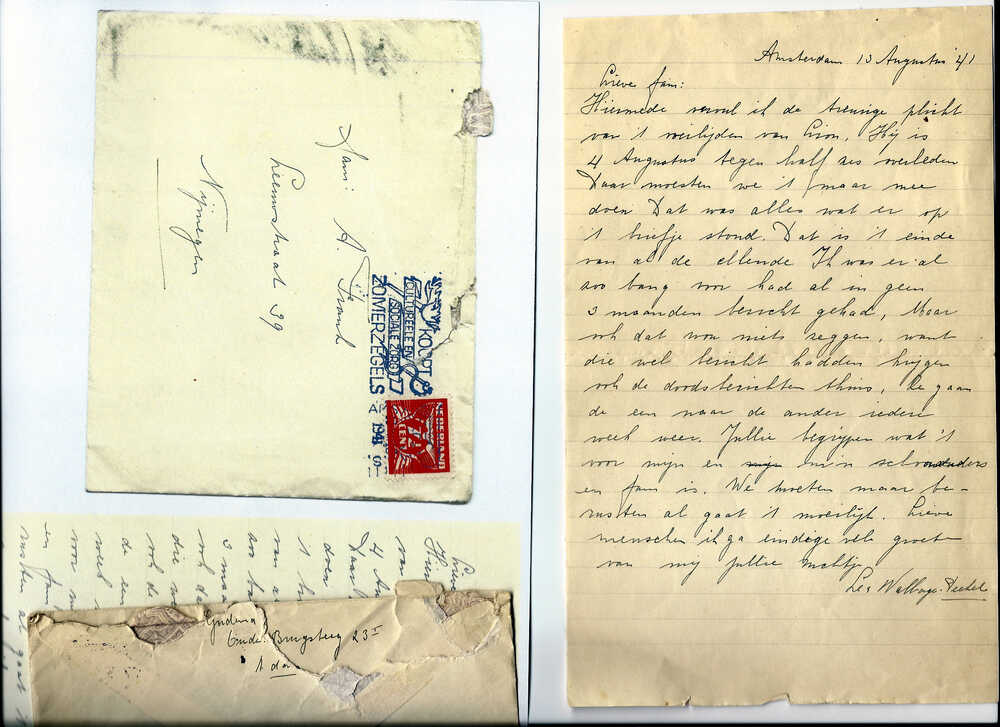 Fam: A. Frank
Leeuwstraat 39
Nijmegen
KOOPT
CULTUREELE EN
SOCIALE ZORG
ZOMERZEGELS
NEDERLAND
7½
CENT
Amsterdam 13 Augustus '41
Lieve fam:
Hiermede vervul ik de treurige plicht
van 't overlijden van Lion. Hij is
4 Augustus tegen half zes overleden
Daar moesten we 't maar mee
doen Dat was alles wat er op
't briefje stond. Dat is 't einde
van al de ellende Ik was er al
zoo bang voor had al in geen
3 maanden bericht gehad, Maar
ook dat zou niets zeggen, want
die wel bericht hadden krijgen
ook de doodsberichten thuis, Ze gaan
de een naar de ander iedere
week weer. Jullie begrijpen wat 't
voor mijn en mijn schoonouders
en fam is. We moeten maar be-
rusten al gaat 't moeilijk. Lieve
menschen ik ga eindige vele groete
van mij jullie nichtje
Walvage
23 I
A'dam